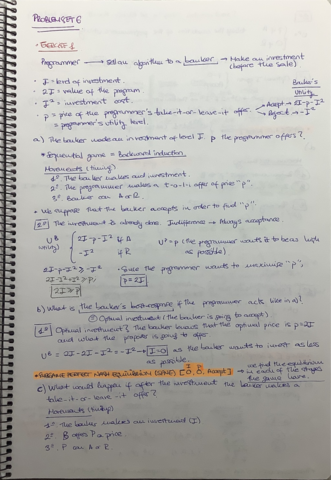 PROBLEM SET 6
• EXERCISE 1
Programmer → Sell an algorithm to a banker → Make an investment
(before the sale)
• I = level of investment.
• 2I = value of the program
• I² = investment cost.
• p = price of the programmer's take-it-or-leave-it offer
= programmer's utility level.
Banker's
Utility
Accept → 2I-p-I²
Reject → -I²
a) The banker made an investment of level I. p the programmer offers?
• Sequential game = Backward induction
Movements (timing)
1º. The banker makes and investment.
2º. The programmer makes a t-o-l-i offer of price "p"
3º. Banker can A or R.
• We suppose that the banker accepts in order to find "p".
2º The investment is already done. Indifference → Always acceptance
Uᴮ
(utility)
2I-p-I² if A
-I² if R
Uᴾ = p (the programmer wants it to be as high
as possible)
2I-p-I² ≥ -I²
2I-I²+I² ≥ p;
2I ≥ p
• Since the programmer wants to maximize "p",
p = 2I
b) What is the banker's best response if the programmer acts like in a)?
Optimal investment (the banker is going to accept)
1º Optimal investment? The banker knows that the optimal price is p=2I
and what the program is going to offer
Uᴮ = 2I - 2I - I² = -I² → I=0 as the banker wants to invest as less
as possible.
• SUBGAME PERFECT NASH EQUILIBRIUM (SPNE) [0, 0, Accept]
I p
in each of the stages
the game have.
c) What would happen if after the investment the banker makes a
take-it-or-leave it offer?
Movements (timing)
1º. The banker makes an investment (I)
2º. B offers P a price
3º. P can A or R